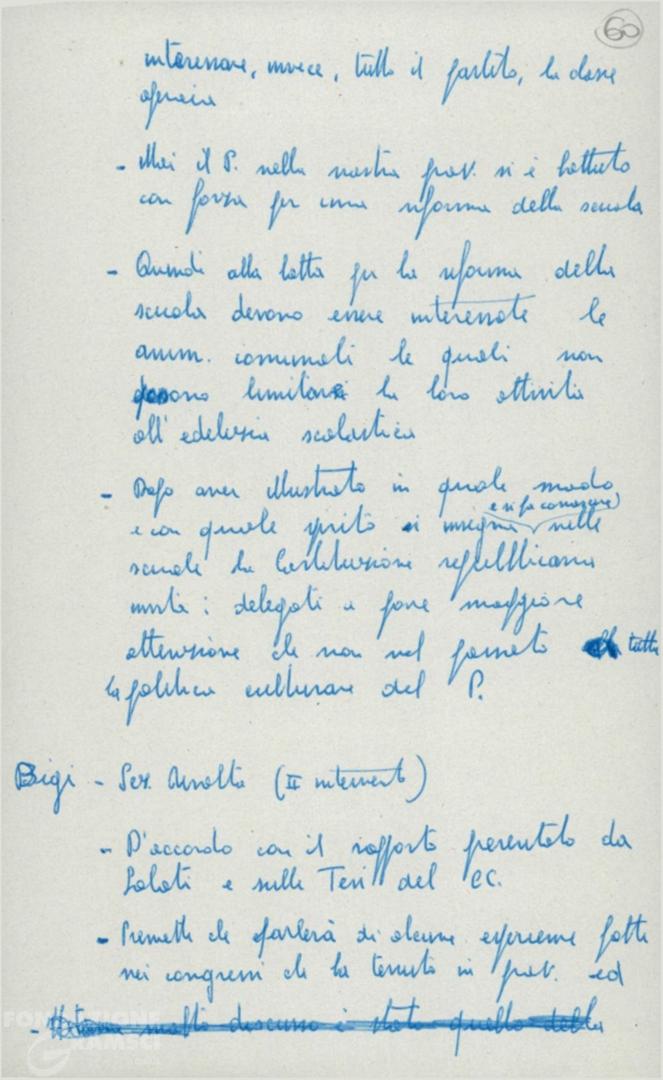 60
interessare, invece, tutto il partito, la classe
operaia
- Mai il P. nella nostra prov. si è battuto
con forza per una riforma della scuola
- Quindi alla lotta per la riforma della
scuola devono essere interessate le
amm. comunali le quali non
possono limitare la loro attività
all'edilizia scolastica
- Dopo aver illustrato in quale modo
e si fa conoscere
e con quale spirito si insegna nelle
scuole la Costituzione repubblicana
invita i delegati a fare maggiore
attenzione che non nel passato tutta
la politica culturale del P.
Bigi - Sez. (II intervento)
- D'accordo con il rapporto presentato da
e sulle Tesi del CC.
- Premette che parlerà di alcune esperienze fatte
nei congressi che ha tenuto in prov. ed
- molto discusso è stato quello della
FONDAZIONE
GRAMSCI